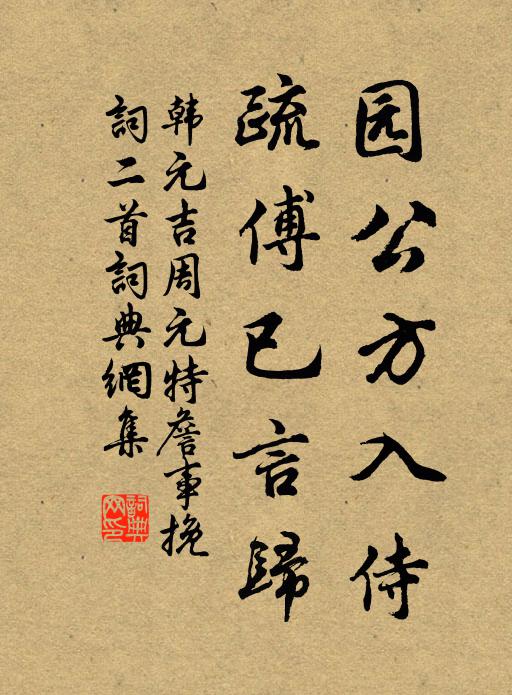 园公方入侍
疏傅已言歸
韩元吉周元特詹事挽
詞二首詞典網集
詞典网印